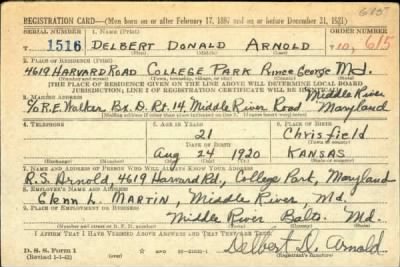 6157
REGISTRATION CARD—(Men born on or after February 17, 1897 and on or before December 31, 1921)
SERIAL NUMBER 1. NAME (Print) ORDER NUMBER
T 1516 DELBERT DONALD ARNOLD T 10,615
2. PLACE OF RESIDENCE (Print)
4619 HARVARD ROAD COLLEGE PARK Prince George Md.
(Number and street) (Town, township, village, or city) (County) (State)
[THE PLACE OF RESIDENCE GIVEN ON THE LINE ABOVE WILL DETERMINE LOCAL BOARD
JURISDICTION; LINE 2 OF REGISTRATION CERTIFICATE WILL BE IDENTICAL]
3. MAILING ADDRESS Middle River
c/o R.E. Walker Bx. D. Rt. 14, Middle River Road Maryland
[Mailing address if other than place indicated on line 2. If same insert word same]
4. TELEPHONE 5. AGE IN YEARS 6. PLACE OF BIRTH
21 Chrisfield
DATE OF BIRTH (Town or county)
Aug 24 1920 KANSAS
(Exchange) (Number) (Mo.) (Day) (Yr.) (State or country)
7. NAME AND ADDRESS OF PERSON WHO WILL ALWAYS KNOW YOUR ADDRESS
R.S. Arnold, 4619 Harvard Rd., College Park, Maryland
8. EMPLOYER'S NAME AND ADDRESS
Glenn L. MARTIN, Middle River, Md.
9. PLACE OF EMPLOYMENT OR BUSINESS
Middle River Balto. Md.
(Number and street or R. F. D. number) (Town) (County) (State)
I AFFIRM THAT I HAVE VERIFIED ABOVE ANSWERS AND THAT THEY ARE TRUE.
D. S. S. Form 1
(Revised 1-1-42) (over)
Delbert D. Arnold
(Registrant's signature)